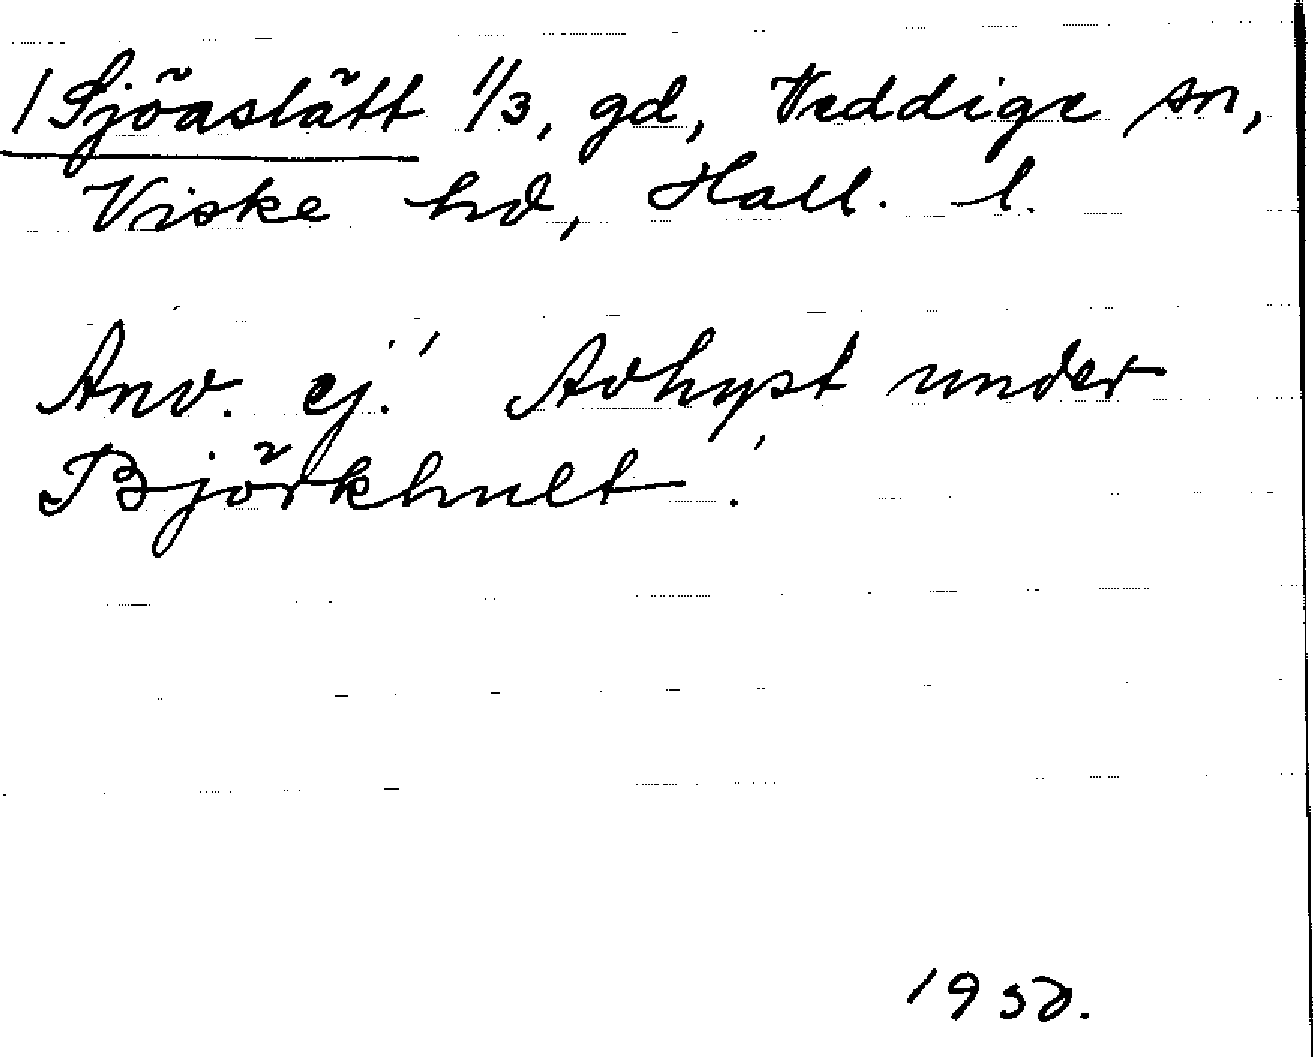 / Sjöaslätt 1/3, gd, Veddige sn,
Viske hd, Hall. l.
Anv. ej! Avhyst under
Björkhult!
1930.